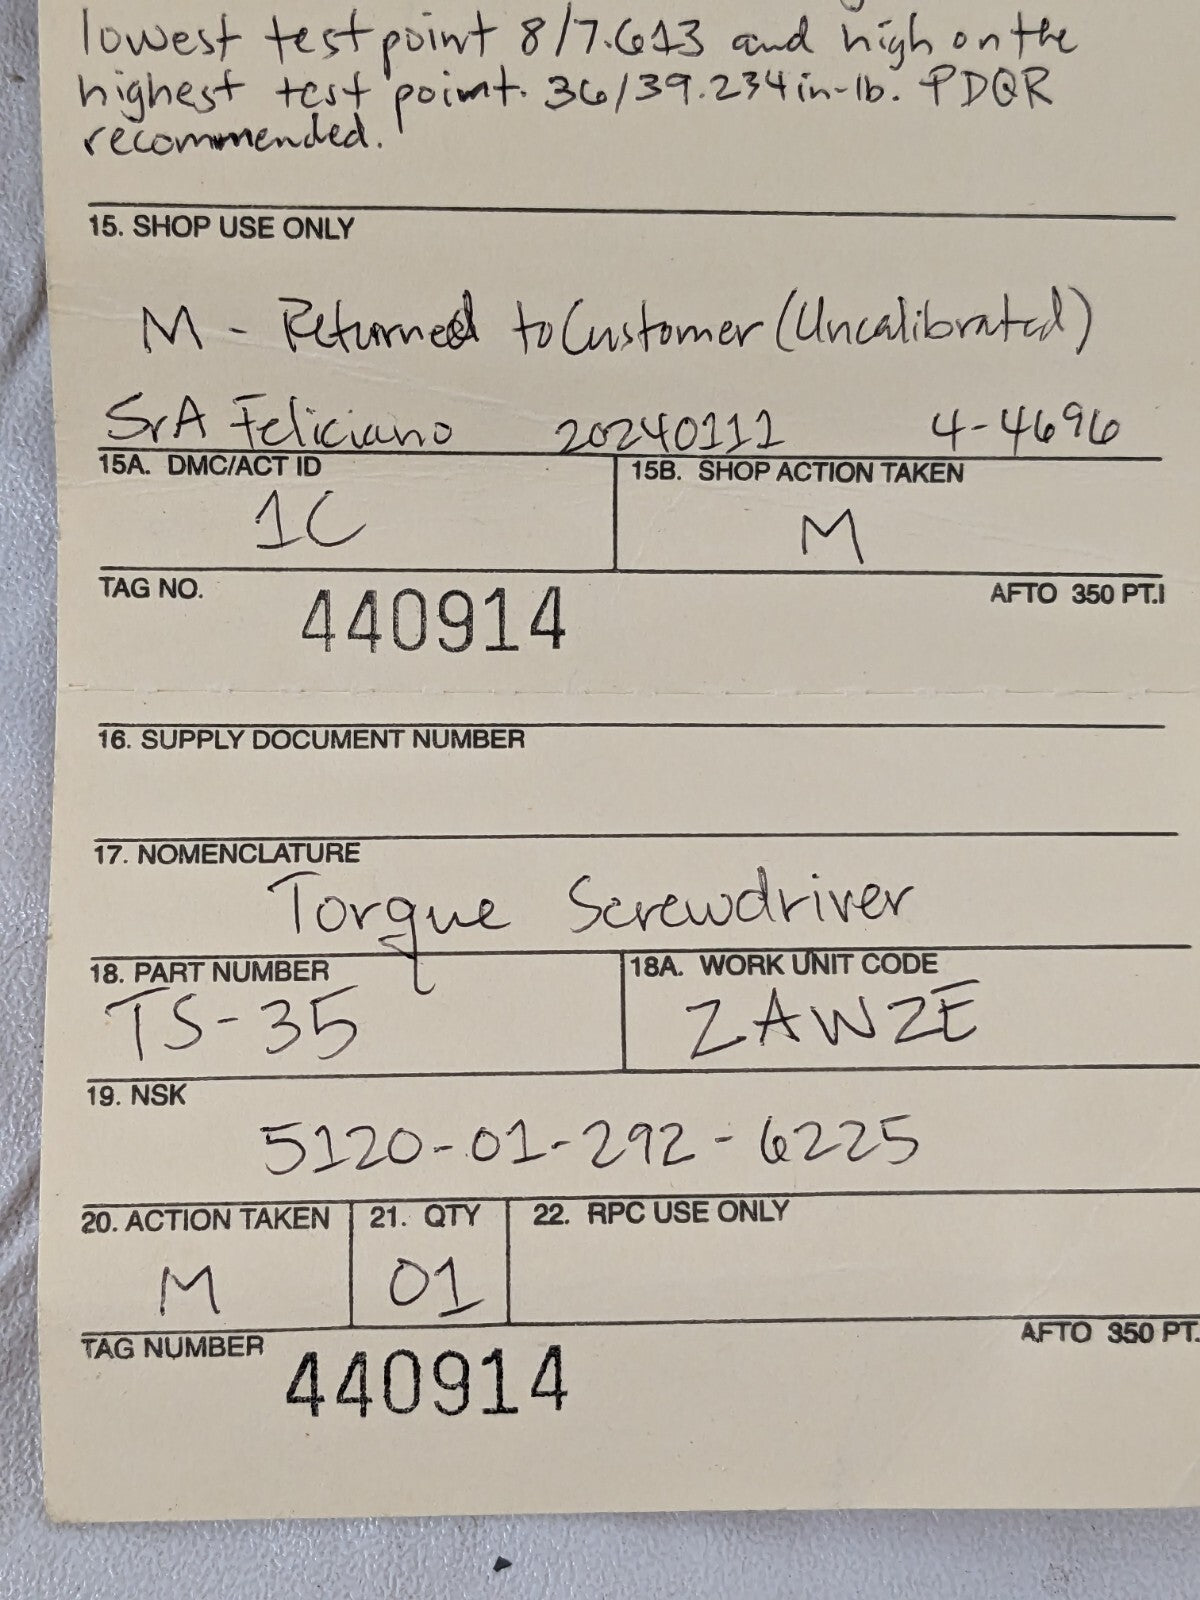 lowest test point 8/7.613 and high on the
highest test point. 36/39.234 in-lb. PDQR
recommended.
15. SHOP USE ONLY
M - Returned to Customer (Uncalibrated)
SrA Feliciano 20240111 4-4696
15A. DMC/ACT ID 15B. SHOP ACTION TAKEN
1C M
TAG NO. 440914 AFTO 350 PT.I
16. SUPPLY DOCUMENT NUMBER
17. NOMENCLATURE
Torque Screwdriver
18. PART NUMBER 18A. WORK UNIT CODE
TS-35 ZAWZE
19. NSK
5120-01-292-6225
20. ACTION TAKEN 21. QTY 22. RPC USE ONLY
M 01
TAG NUMBER 440914 AFTO 350 PT.